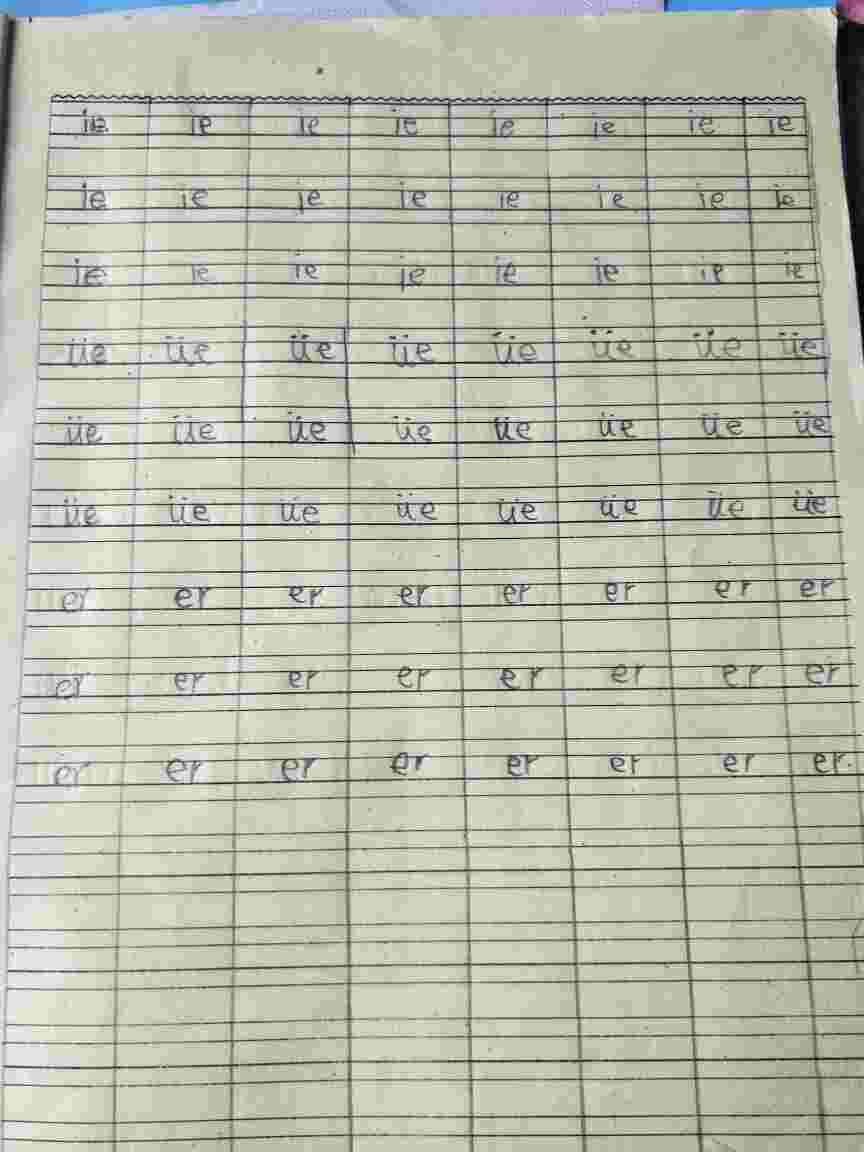 ie ie ie ie ie ie ie ie
ie ie ie ie ie ie ie ie
ie ie ie ie ie ie ie ie
üe üe üe üe üe üe üe üe
üe üe üe üe üe üe üe üe
üe üe üe üe üe üe üe üe
er er er er er er er er
er er er er er er er er
er er er er er er er er.